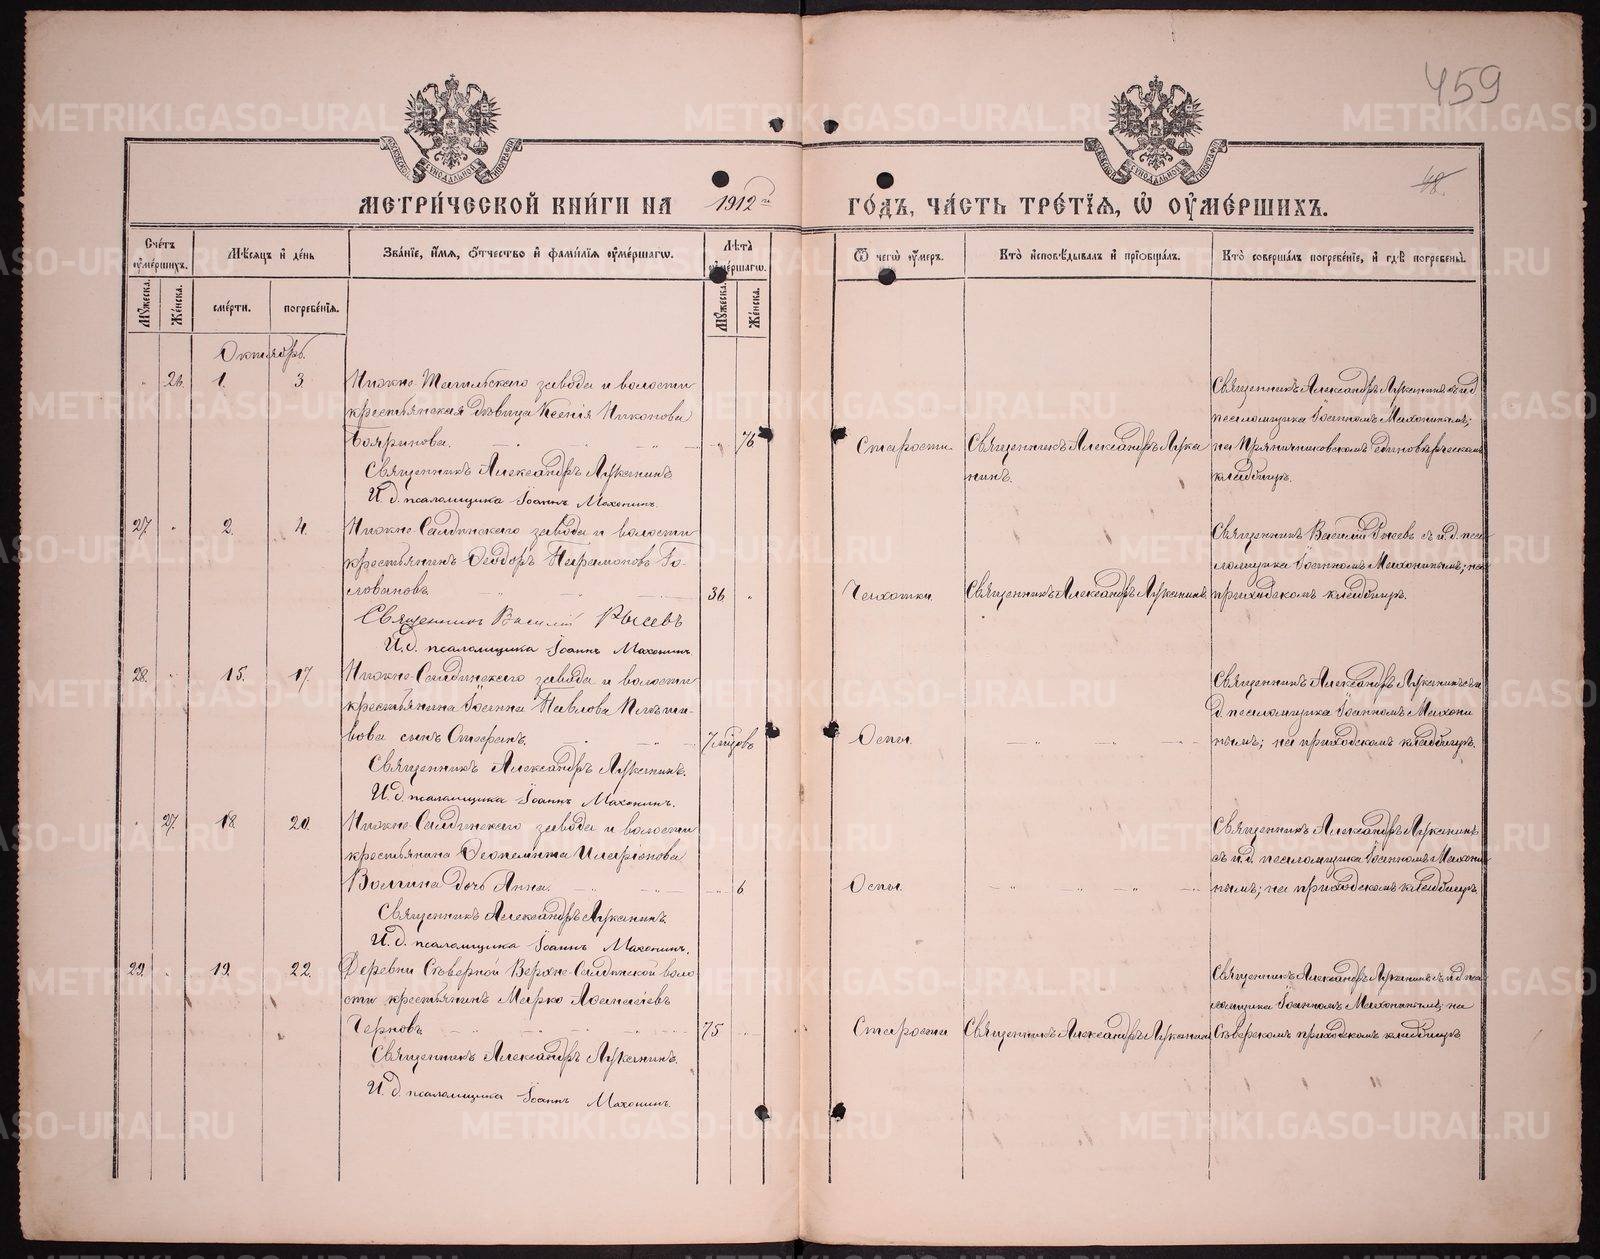 459
48.
МЕТРИ́ЧЕСКОЙ КНИ́ГИ НА 1912 го ГО́ДЪ, ЧА́СТЬ ТРЕ́ТІѦ, Ѡ ОУМЕ́РШИХЪ.
Сче́тъ оуме́ршихъ.
Мѣ́сяцъ и де́нь
Зва́нїе, и́мѧ, ѻ́тчество и фами́лїѧ оуме́ршагѡ.
Лѣ́та оуме́ршагѡ.
Ѿ чегѡ̀ оу́меръ.
Кто̀ и҆сповѣ́дывалъ и прїобща́лъ.
Кто̀ соверша́лъ погребе́нїе, и гдѣ̀ погребены̀.
Мꙋ́жеска.
Же́нска.
сме́рти.
погребе́нїѧ.
Мꙋ́жеска.
Же́нска.
Октябрь.
26. 1. 3. Нижне-Тагильскаго завода и волости
крестьянская дѣвица Ксенія Никонова
Бояринова. 76
Священникъ Александръ Луканинъ
И. д. псаломщика Іоаннъ Махонинъ.
Старости. Священникъ Александръ Лука
нинъ.
Священникъ Александръ Луканинъ съ и д
псаломщика Іоанномъ Махонинымъ;
на Единовѣрческомъ
кладбищѣ.
27. 2. 4. Нижне-Салдинскаго завода и волости
крестьянинъ Ѳеодоръ Парамоновъ Го-
ловановъ. 36
Священникъ Василій
И. д. псаломщика Іоаннъ Махонинъ.
Чахотки. Священникъ Александръ Луканинъ.
Священникъ Василій съ и. д. пса
ломщика Іоанномъ Махонинымъ; на
приходскомъ кладбищѣ.
28. 15. 17. Нижне-Салдинскаго завода и волости
крестьянина Іоанна Павлова
сынъ Стефанъ. 7 мѣс
Священникъ Александръ Луканинъ.
И. д. псаломщика Іоаннъ Махонинъ.
Оспы.
Священникъ Александръ Луканинъ съ и
д. псаломщика Іоанномъ Махони
нымъ; на приходскомъ кладбищѣ.
27. 18. 20. Нижне-Салдинскаго завода и волости
крестьянина Ѳеопемпта Иларіонова
Волгина дочь Анна. 6
Священникъ Александръ Луканинъ.
И. д. псаломщика Іоаннъ Махонинъ.
Оспы.
Священникъ Александръ Луканинъ
съ и. д. псаломщика Іоанномъ Махони
нымъ; на приходскомъ кладбищѣ.
29. 19. 22. Деревни Сѣверной Верхне-Салдинской воло
сти крестьянинъ Марко Аѳанасіевъ
Черновъ 75
Священникъ Александръ Луканинъ.
И. д. псаломщика Іоаннъ Махонинъ.
Старости Священникъ Александръ Луканинъ
Священникъ Александръ Луканинъ съ и д пса
ломщика Іоанномъ Махонинымъ; на
Сѣверскомъ приходскомъ кладбищѣ.
METRIKI.GASO-URAL.RU